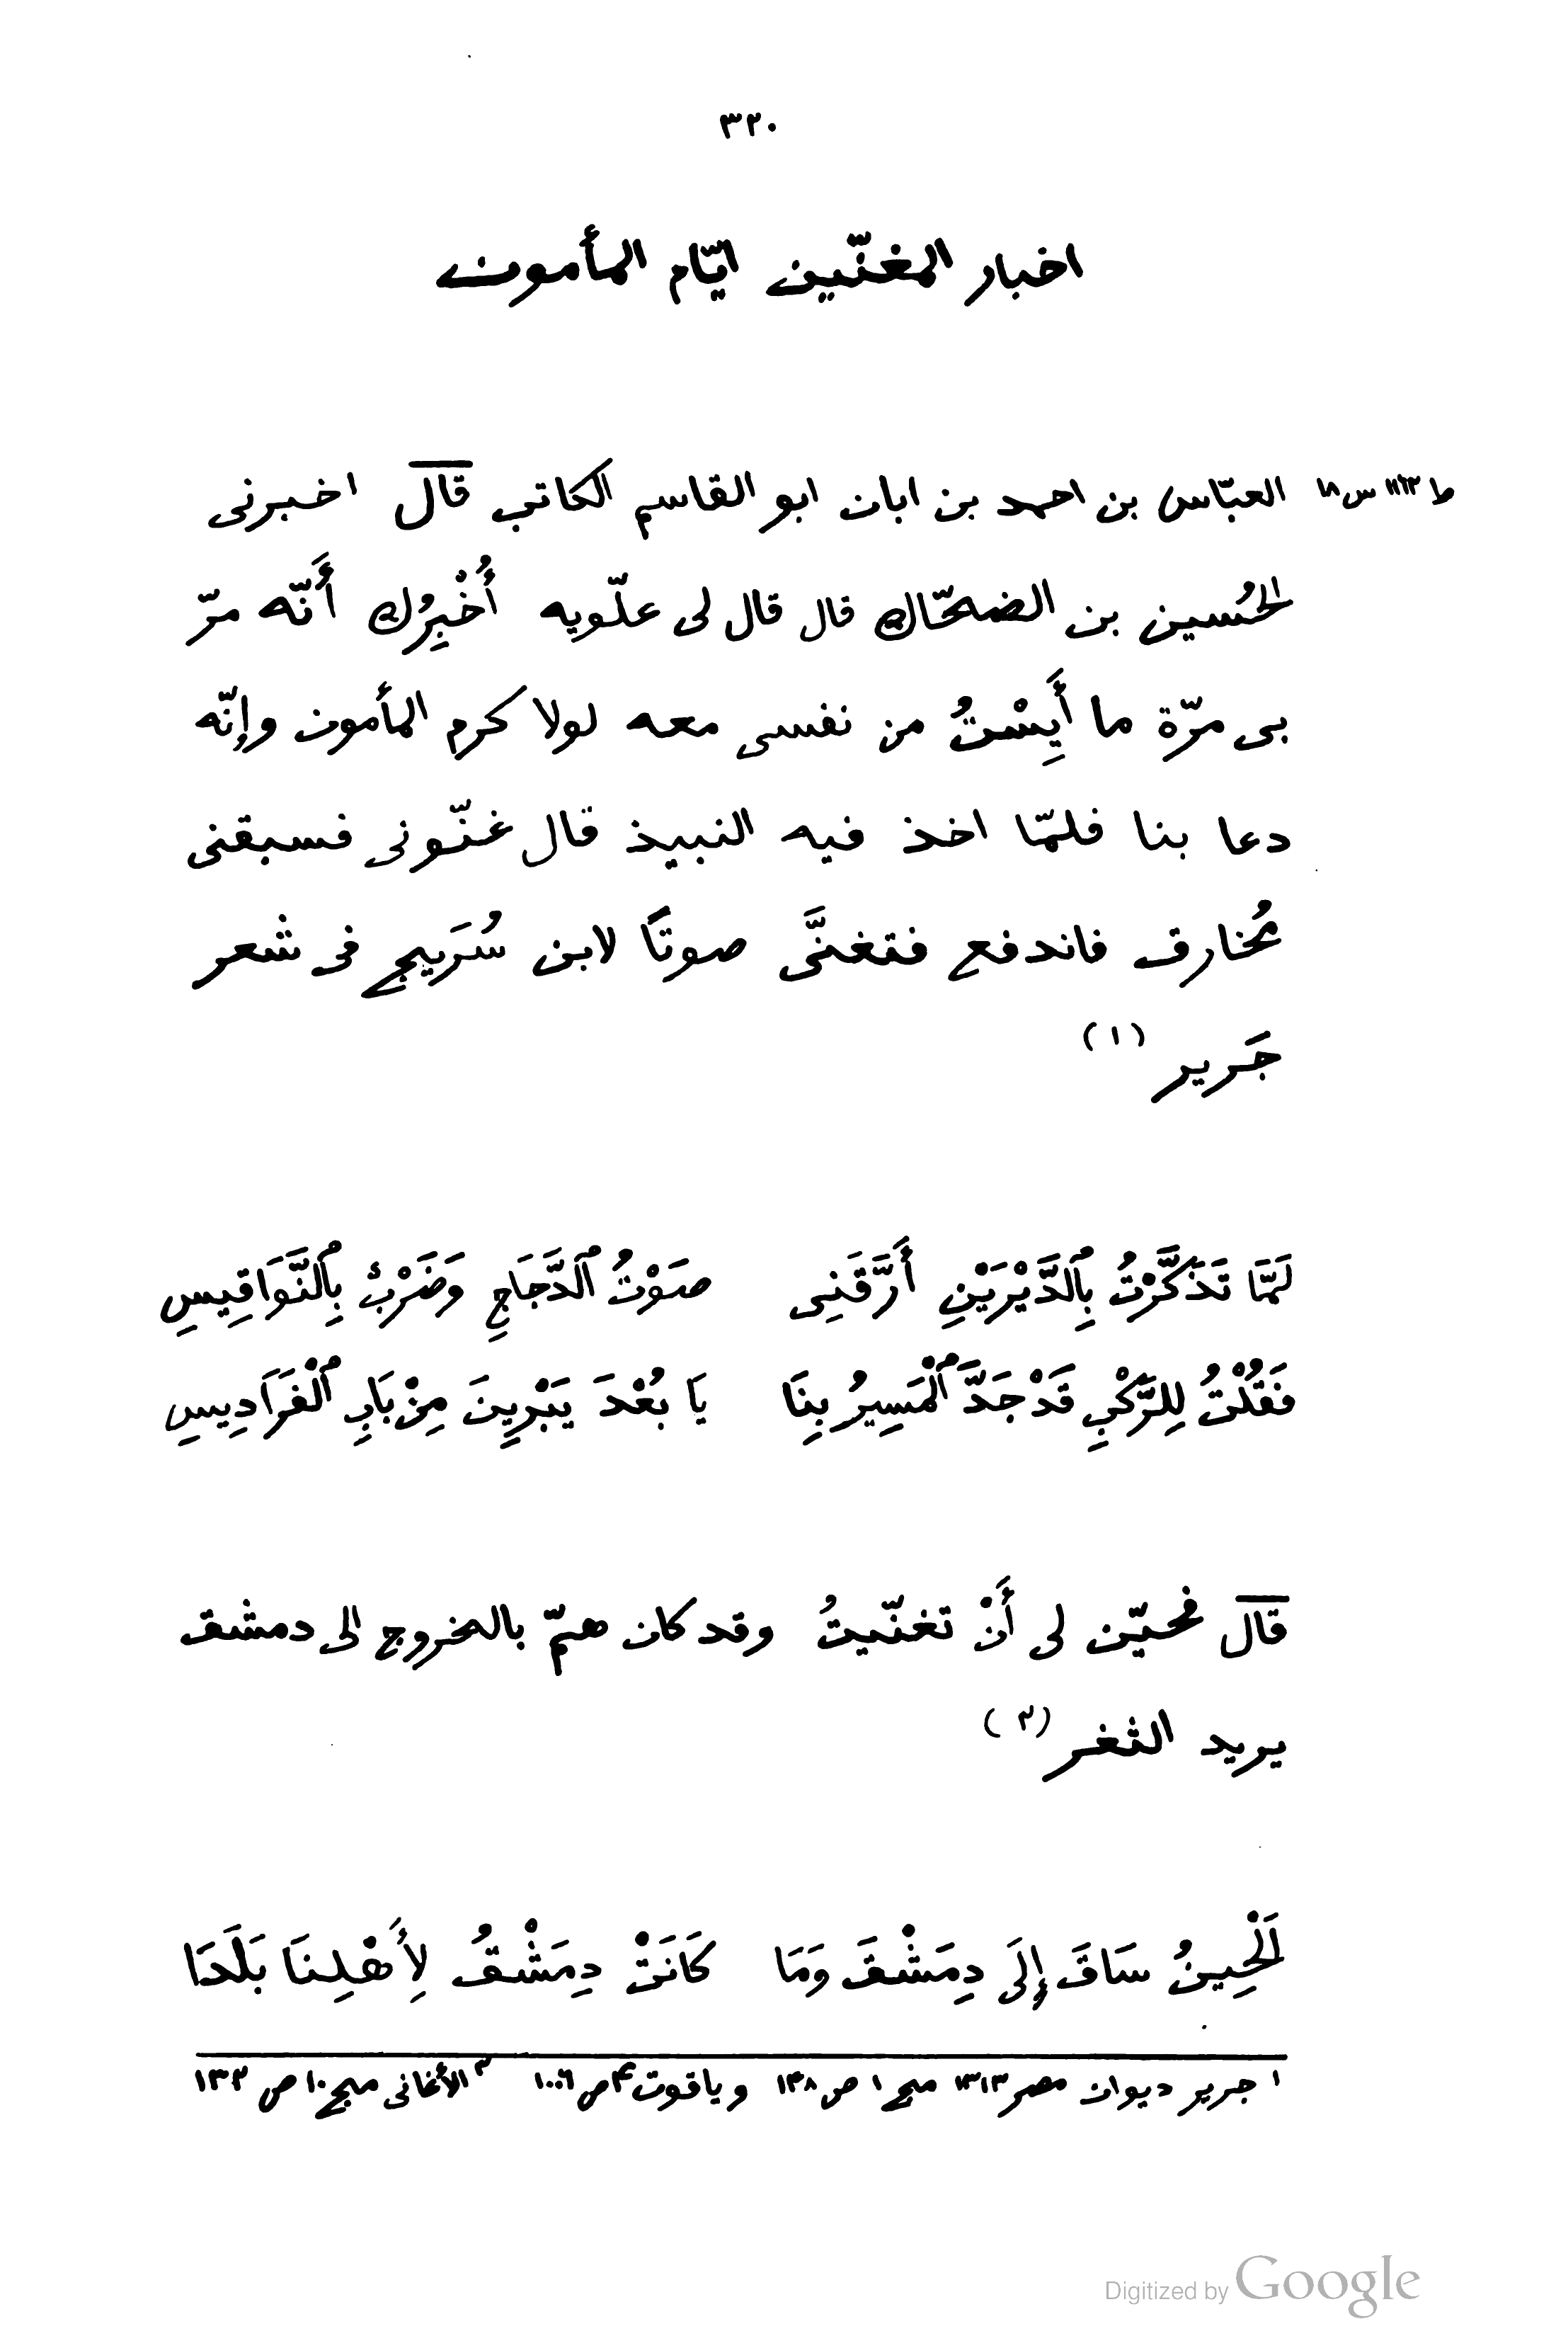 ٣٢٠
اخبار المغنّين ايّام المأمون
ط ١١٢٣ س ١٨
العبّاس بن احمد بن ابان ابو القاسم الكاتب قال اخبرنى
الحُسين بن الضحّاك قال قال لى علّويه أُخْبِرُك أَنّه مرّ
بى مرّة ما أَيِسْتُ من نفسى معه لولا كرم المأمون وإنّه
دعا بنا فلمّا اخذ فيه النبيذ قال غنّونى فسبقنى
مُخارق فاندفع فتغنَّى صوتًا لابن سُرَيج فى شعر
جَرير (١)
لَمَّا تَذَكَّرْتُ بِٱلدَّيْرَيْنِ أَرَّقَنِى صَوْتُ ٱلدَّجَاجِ وَضَرْبٌ بِٱلنَّوَاقِيسِ
فَقُلْتُ لِلرَّكْبِ قَدْ جَدَّ ٱلْمَسِيرُ بِنَا يَا بُعْدَ يَبْرِينَ مِنْ بَابِ ٱلْفَرَادِيسِ
قال فحيّن لى أَنْ تغنّيتُ وقد كان همّ بالخروج الى دمشق
يريد الثغر (٢)
اَلْحِينُ سَاقَ إِلَى دِمَشْقَ وَمَا كَانَتْ دِمَشْقُ لِأَهْلِنَا بَلَدَا
١ جرير ديوان مصر ١٣١٣ مج ١ ص ١٤٨ وياقوت ص ١٠٠٦ ٢ الأغانى مج ١٠ ص ١٣٢
Digitized by Google